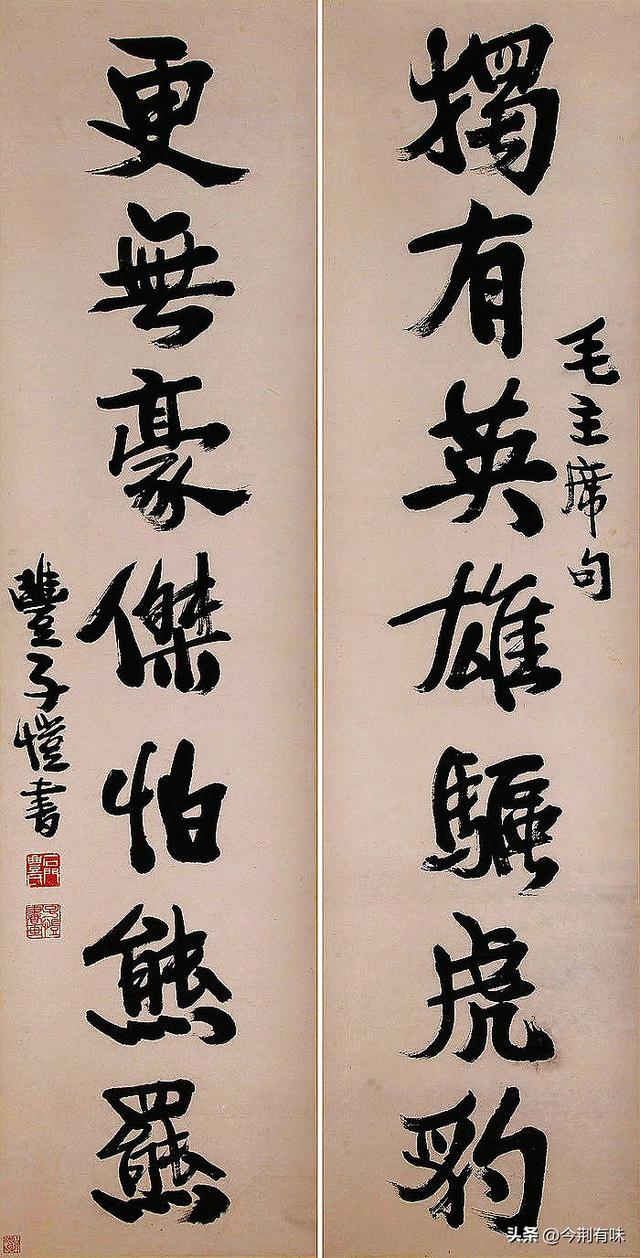 毛主席句
獨有英雄驅虎豹
更無豪傑怕熊羆
豐子愷書
石門豐氏
子愷書畫
头条@今荆有味